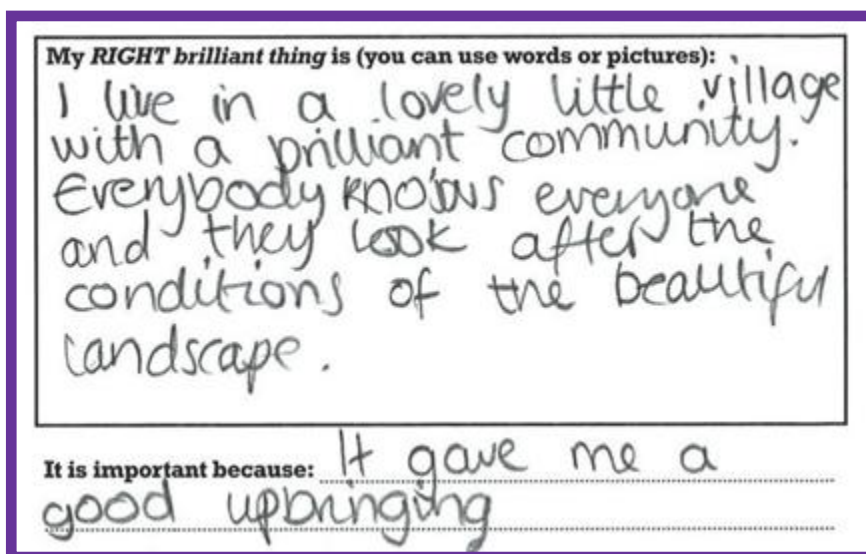 My RIGHT brilliant thing is (you can use words or pictures):
I live in a lovely little village
with a brilliant community.
Everybody knows everyone
and they look after the
conditions of the beautiful
landscape.
It is important because: It gave me a
good upbringing